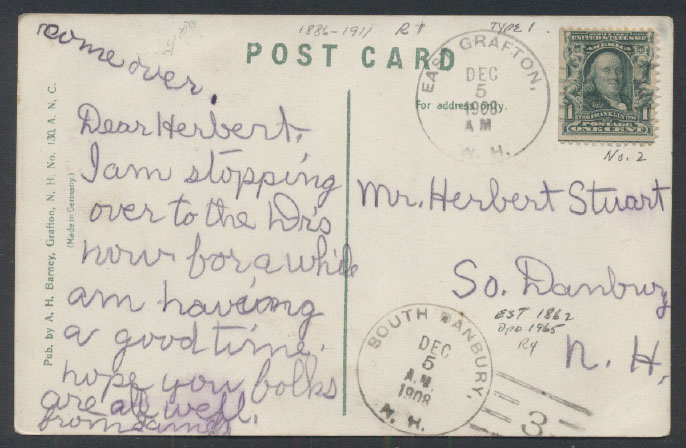 come over.
1886-1911 R↑ TYPE 1
POST CARD
Dear Herbert,
I am stopping
over to the Drs
now for a while
am having
a good time.
hope you folks
are all well.
from
Pub. by A. H. Barney, Grafton, N. H. No. 130, A. N. C.
(Made in Germany.)
EAST GRAFTON,
DEC
5
1908
AM
N. H.
For address only.
UNITED STATES OF
AMERICA
1 FRANKLIN 1
POSTAGE
ONE CENT
No. 2
Mr. Herbert Stuart
So. Danbury
EST 1862
dpo 1965
R4
N. H.
SOUTH DANBURY,
DEC
5
A.M.
1908
N. H.
3